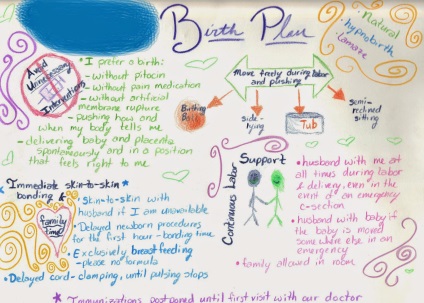 Birth Plan
Natural
hypnobirth
Lamaze
Avoid
Unnecessary
Interventions
• I prefer a birth:
- without pitocin
- without pain medication
- without artificial
membrane rupture
- pushing how and
when my body tells me
- delivering baby and placenta
spontaneously and in a position
that feels right to me
Move freely during labor
and pushing
Birthing
Ball
side-
lying
Tub
semi-
reclined
sitting
Immediate skin-to-skin
bonding
family
time
• Skin-to-skin with
husband if I am unavailable
• Delayed newborn procedures
for the first hour - bonding time
• Exclusively breastfeeding
- please no formula
• Delayed cord-clamping, until pulsing stops
Continuous Labor
Support
• husband with me at
all times during labor
& delivery, even in the
event of an emergency
c-section
• husband with baby if
the baby is moved
somewhere else in an
emergency
• family allowed in room
Immunizations postponed until first visit with our doctor